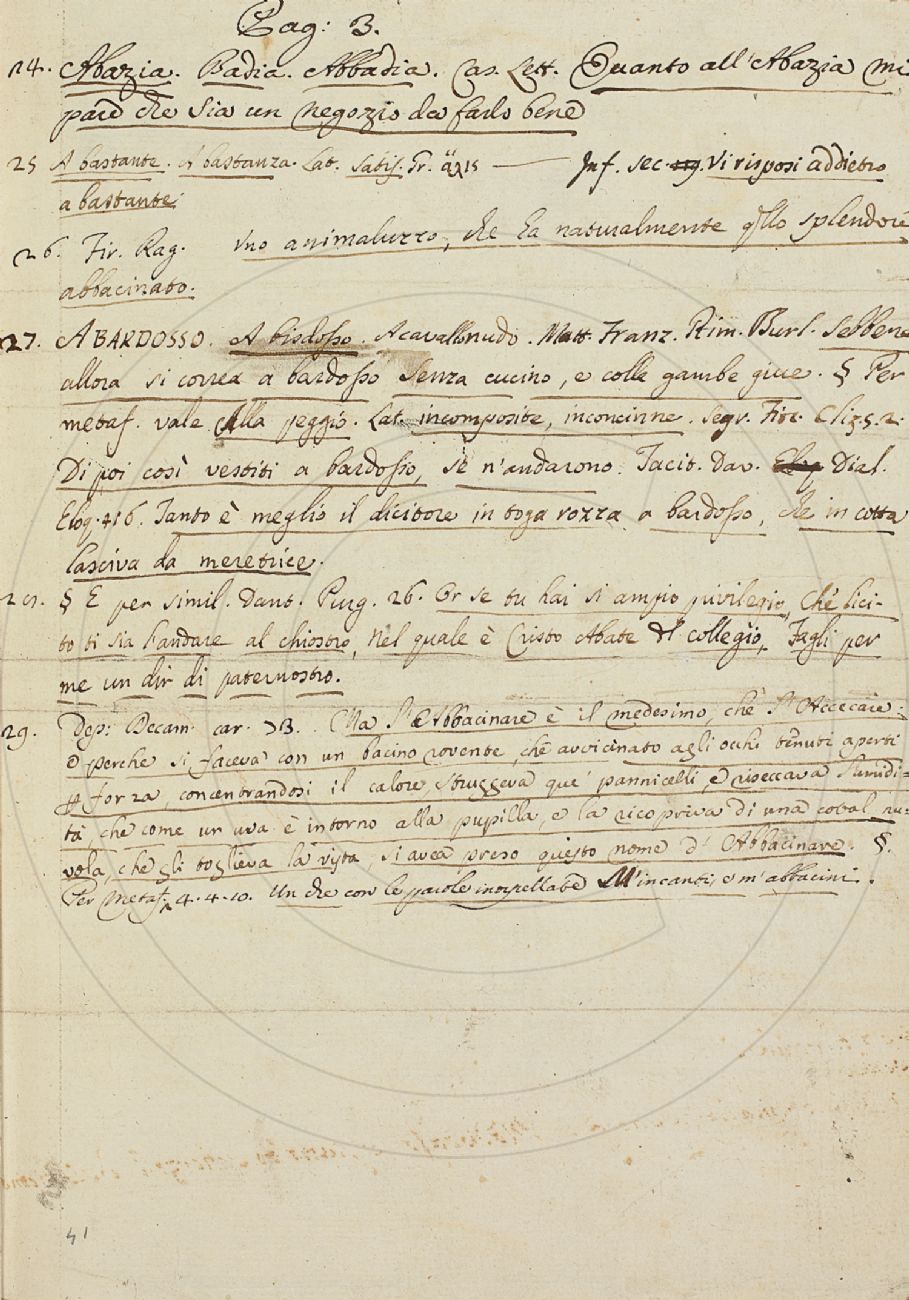 Pag: 3.
24. Abazia. Badia. Abbadia. Cas. Lett. Quanto all'Abazia mi
pare che sia un negozio da farlo bene
25 A bastante. A bastanza. Lat. Satis. Gr. ἅλις — Inf. sec. Vi risposi addietro
a bastante.
26. Fir. Rag. Uno animaluzzo, che ha naturalmente qllo splendore
abbacinato.
27. ABARDOSSO. A bisdosso. A cavallo nudo. Matt. Franz. Rim. Burl. Sebbene
allora si correa a bardosso Senza cucino, e colle gambe giue. § Per
metaf. vale Alla peggio. Lat. incomposite, inconcinne. Segr. Fior. Cliz. 5. 2.
Di poi così vestiti a bardosso, se n'andarono. Tacit. Dav. Dial.
Eloq. 416. Tanto è meglio il dicitore in toga rozza a bardosso, che in cotta
lasciva da meretrice.
§ E per simil. Dant. Purg. 26. Or se tu hai si ampio privilegio, Che lici-
to ti sia l'andare al chiostro, Nel quale è Cristo Abate del collegio, Fagli per
me un dir di paternostro.
29. Dep: Decam. car. 73. Ma l'Abbacinare è il medesimo, che l'Accecare:
e perche si faceva con un bacino rovente, che avvicinato agli occhi tenuti aperti
forza, concentrandosi il calore, struggeva que' pannicelli, e riseccava l'umidi=
tà, che come un uva è intorno alla pupilla, e la ricopriva di una cotal nu-
vola, che gli toglieva la vista, si avea preso questo nome d'Abbacinare. §.
Per Metaf. 4. 4. 10. Un che con le parole inorpellate M'incanti, e m'abbacini.
41